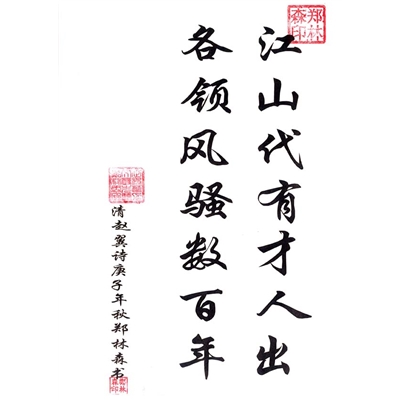 江山代有才人出
各领风骚数百年
清赵翼诗庚子年秋郑林森书
郑林
森印